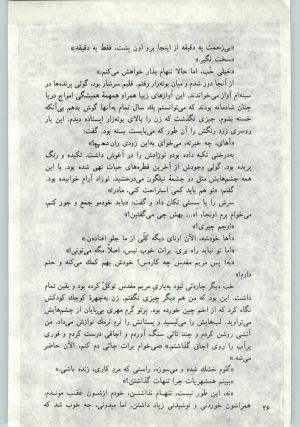 «بی‌زحمت یه دقیقه از اینجا برو اون پشت، فقط یه دقیقه.»
«سخت نگیر.»
«خیلی خب، اما حالا تنهام بذار خواهش می‌کنم.»
از آنجا دور شد و میان بوته‌زار رفتم. قلبم سرشار بود، گوئی پرنده‌ها در
سینه‌ام آواز می‌خواندند. این آوازهای زیبا همراه همهمهٔ همیشگی امواج دریا
چنان شادمانه بودند که می‌توانستم یک سال تمام به‌آنها گوش بدهم بی‌آنکه
خسته شوم. چیزی نگذشت که زن را بالای بوته‌زار ایستاده دیدم. این بار
روسری زرد رنگش را آن طور که می‌بایست بسته بود. گفت:
«آهای، چه خبرته، می‌خوای به‌این زودی وان
به‌درختی تکیه داده بود نوزادش را در آغوش داشت. تکیده و رنگ
پریده بود. گوئی وجودش از آخرین قطره‌های حیات تهی شده بود. با این
همه چشمهایش مثل دو چشمهٔ نیلگون می‌درخشید. نوزاد آرام خوابیده بود.
گفتم: «تو هم باید کمی استراحت کنی، مادر!»
سرش را با سستی تکان داد و گفت: «باید خودمو جمع و جور کنم،
می‌خوام برم اونجا، اه... بهش چی می‌گفتین؟»
«اوچم چیری؟»
«آها خودشه، الآن اونای دیگه کلّی از ما جلو افتاده‌ن.»
«اما تو نباید راه بری. برات خوب نیس. اصلاً مگه می‌تونی!»
«په! پس مریم مقدس چه کاره‌س! خودش بهم کمک می‌کنه و حتم
دارم!»
خب دیگر چاره‌ئی نبود به‌یاری مریم مقدس توکل کرده بود و یقین تمام
داشت. این بود که من هم دیگر چیزی نگفتم. زن به‌چهرهٔ کوچک کودکش
نگاه کرد که از اخم چین خورده بود. پرتو گرم مهری بی‌پایان از چشمهایش
می‌تراوید. لب‌هایش را می‌لیسید و پستانش را نرم نرمک نوازش می‌داد. من
آتشی روشن کردم و چند تائی سنگ آوردم و اجاقی دست کردم و قوری
پرآب را روی اجاق گذاشتم. «می‌خوام برات چائی دم کنم، الآن حاضر
می‌شه.»
«گلوم خشک شده و می‌سوزه، راستی که مردِ کاری، زنده باشی.»
«ببینم همشهریات چرا تنهات گذاشتن؟»
«نه این طور نیست، تنهام نذاشتن، خودم ازشون عقب موندم.
همراشون خوردنی و نوشیدنی زیاد داشتن. اما میدونی، چه خوب شد که
۲۶